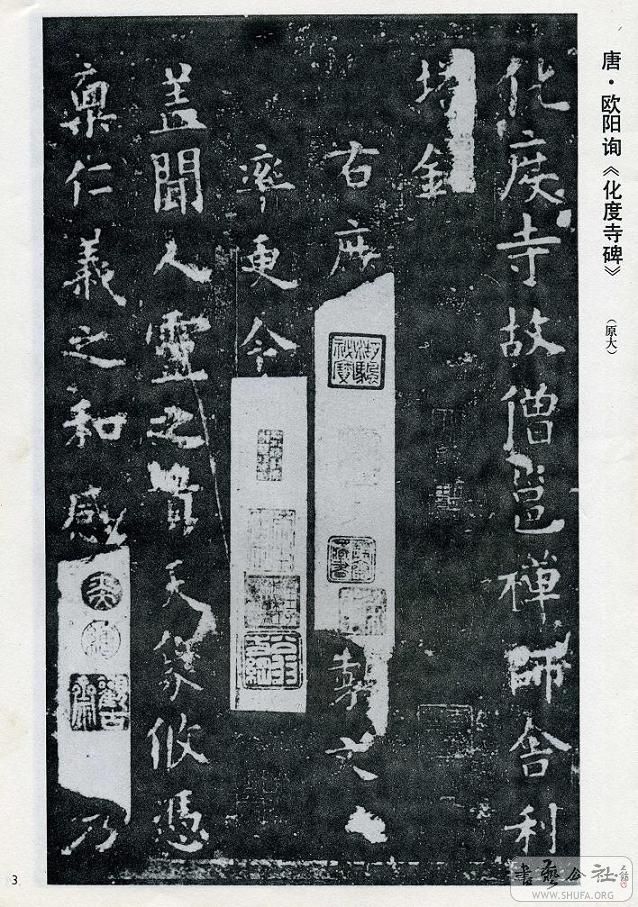 唐·欧阳询《化度寺碑》
(原大)
化度寺故僧邕禅師舍利
塔銘
右庶 製文
率更令
盖聞人靈之貴天象攸憑
禀仁義之和感 乃
3
書藝公社
WWW.SHUFA.ORG